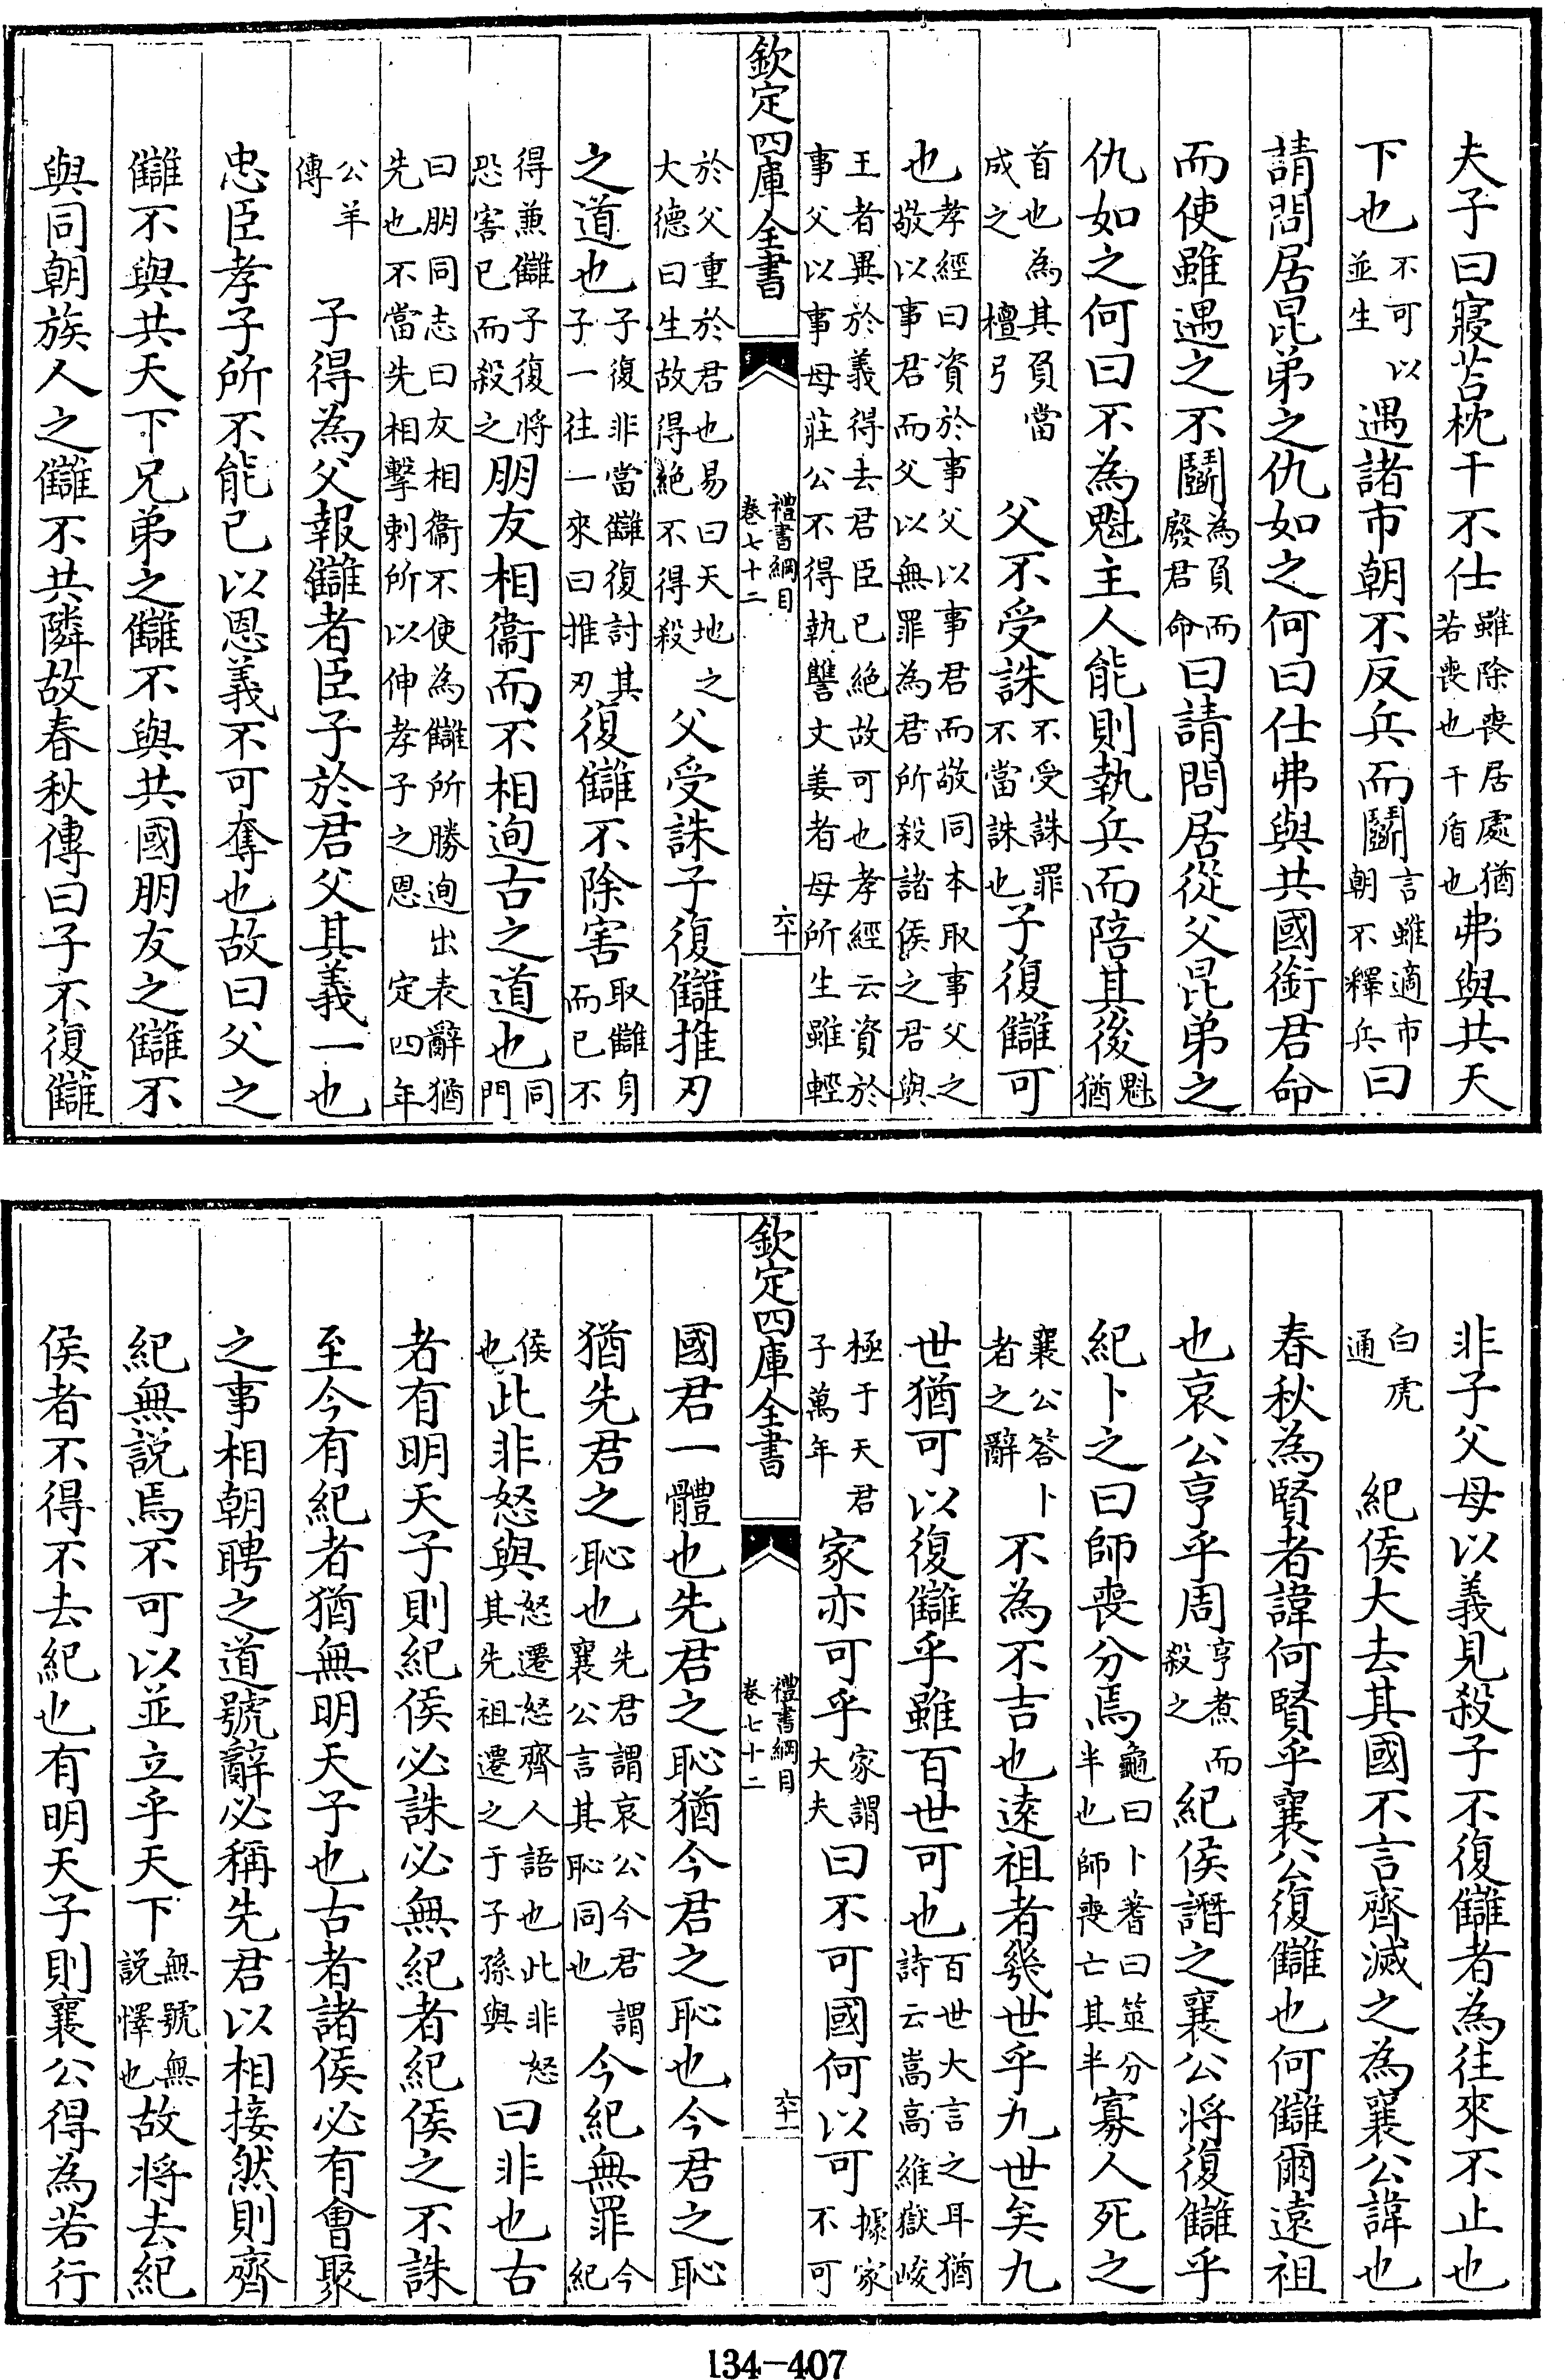 夫子曰寢苫枕干不仕雖除喪居處猶若喪也干盾也弗與共天
下也不可以並生遇諸市朝不反兵而鬭言雖適市朝不釋兵曰
請問居昆弟之仇如之何曰仕弗與共國銜君命
而使雖遇之不鬭為負而廢君命曰請問居從父昆弟之
仇如之何曰不為魁主人能則執兵而陪其後魁猶
首也為其負當成之檀弓父不受誅不受誅罪不當誅也子復讎可
也孝經曰資於事父以事君而敬同本取事父之敬以事君而父以無罪為君所殺諸侯之君與
王者異於義得去君臣已絶故可也孝經云資於事父以事母莊公不得執讐文姜者母所生雖輕
欽定四庫全書
禮書綱目
卷七十二
六十
於父重於君也易曰天地之大德曰生故得絶不得殺父受誅子復讎推刃
之道也子復非當讎復討其子一往一來曰推刃復讎不除害取讎身而已不
得兼讎子復將恐害已而殺之朋友相衞而不相迿古之道也同門
曰朋同志曰友相衞不使為讎所勝迿出表辭猶先也不當先相擊剌所以伸孝子之恩定四年
公羊傳子得為父報讎者臣子於君父其義一也
忠臣孝子所不能已以恩義不可奪也故曰父之
讎不與共天下兄弟之讎不與共國朋友之讎不
與同朝族人之讎不共隣故春秋傳曰子不復讎
非子父母以義見殺子不復讎者為往來不止也
白虎通紀侯大去其國不言齊滅之為襄公諱也
春秋為賢者諱何賢乎襄公復讎也何讎爾遠祖
也哀公亨乎周亨煮而殺之紀侯譖之襄公將復讎乎
紀卜之曰師喪分焉龜曰卜蓍曰筮分半也師喪亡其半寡人死之
襄公答卜者之辭不為不吉也遠祖者幾世乎九世矣九
世猶可以復讎乎雖百世可也百世大言之耳猶詩云嵩高維嶽峻
極于天君子萬年家亦可乎家謂大夫曰不可國何以可據家不可
欽定四庫全書
禮書綱目
卷七十二
六十一
國君一體也先君之恥猶今君之恥也今君之恥
猶先君之恥也先君謂哀公今君謂襄公言其恥同也今紀無罪今紀
侯也此非怒與怒遷怒齊人語也此非怒其先祖遷之于子孫與曰非也古
者有明天子則紀侯必誅必無紀者紀侯之不誅
至今有紀者猶無明天子也古者諸侯必有會聚
之事相朝聘之道號辭必稱先君以相接然則齊
紀無説焉不可以並立乎天下無號無説懌也故將去紀
侯者不得不去紀也有明天子則襄公得為若行
134—407